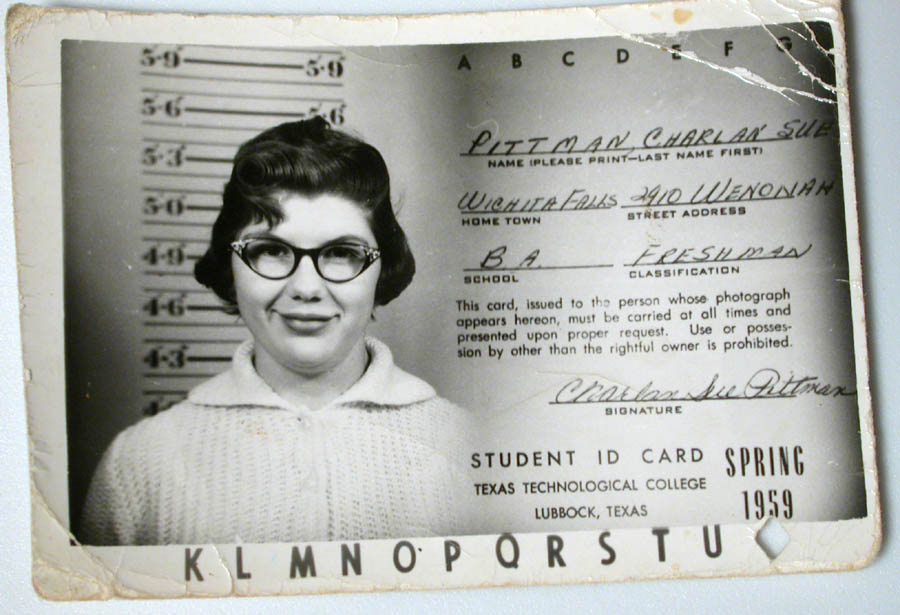 A B C D E F G
5-9 5-9
5-6 5-6
5-3
5-0
4-9
4-6
4-3
PITTMAN, CHARLAN SUE
NAME (PLEASE PRINT—LAST NAME FIRST)
WICHITA FALLS 2910 WENONAH
HOME TOWN STREET ADDRESS
B.A. FRESHMAN
SCHOOL CLASSIFICATION
This card, issued to the person whose photograph
appears hereon, must be carried at all times and
presented upon proper request. Use or posses-
sion by other than the rightful owner is prohibited.
Charlan Sue Pittman
SIGNATURE
STUDENT ID CARD SPRING
TEXAS TECHNOLOGICAL COLLEGE
LUBBOCK, TEXAS 1959
K L M N O P Q R S T U